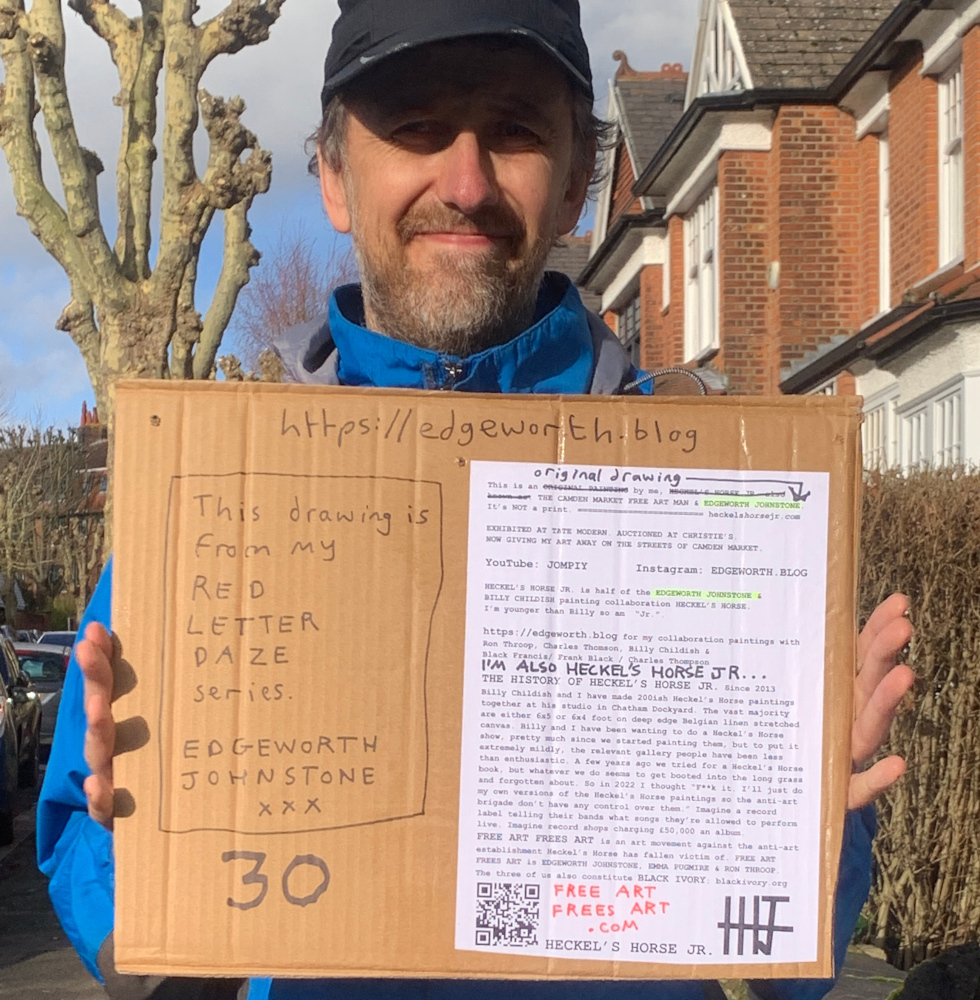 https://edgeworth.blog
This drawing is
From my
RED
LETTER
DAZE
series.
EDGEWORTH
JOHNSTONE
xxx
30
original drawing
This is an ORIGINAL PAINTING by me, HECKEL'S HORSE JR. also
known as THE CAMDEN MARKET FREE ART MAN & EDGEWORTH JOHNSTONE.
It's NOT a print. heckelshorsejr.com
EXHIBITED AT TATE MODERN. AUCTIONED AT CHRISTIE'S.
NOW GIVING MY ART AWAY ON THE STREETS OF CAMDEN MARKET.
YouTube: JOMPIY Instagram: EDGEWORTH.BLOG
HECKEL'S HORSE JR. is half of the EDGEWORTH JOHNSTONE &
BILLY CHILDISH painting collaboration HECKEL'S HORSE.
I'm younger than Billy so am "Jr.".
https://edgeworth.blog for my collaboration paintings with
Ron Throop, Charles Thomson, Billy Childish &
Black Francis/ Frank Black / Charles Thompson
I'M ALSO HECKEL'S HORSE JR...
THE HISTORY OF HECKEL'S HORSE JR. Since 2013
Billy Childish and I have made 200ish Heckel's Horse paintings
together at his studio in Chatham Dockyard. The vast majority
are either 6x5 or 6x4 foot on deep edge Belgian linen stretched
canvas. Billy and I have been wanting to do a Heckel's Horse
show, pretty much since we started painting them, but to put it
extremely mildly, the relevant gallery people have been less
than enthusiastic. A few years ago we tried for a Heckel's Horse
book, but whatever we do seems to get booted into the long grass
and forgotten about. So in 2022 I thought "F**k it. I'll just do
my own versions of the Heckel's Horse paintings so the anti-art
brigade don't have any control over them." Imagine a record
label telling their bands what songs they're allowed to perform
live. Imagine record shops charging £50,000 an album.
FREE ART FREES ART is an art movement against the anti-art
establishment Heckel's Horse has fallen victim of. FREE ART
FREES ART is EDGEWORTH JOHNSTONE, EMMA PUGMIRE & RON THROOP.
The three of us also constitute BLACK IVORY: blackivory.org
FREE ART
FREES ART
.COM
HECKEL'S HORSE JR.